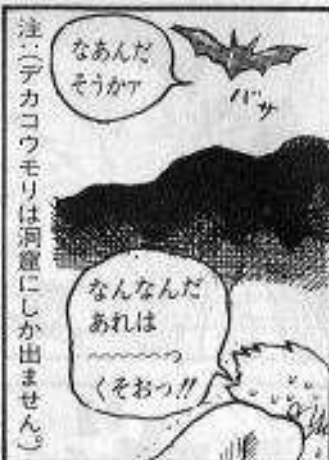 なあんだ
そうかァ
バサ
なんなんだ
あれは
〜〜〜〜〜っ
くそおっ!!
注:(デカコウモリは洞窟にしか出ません)。